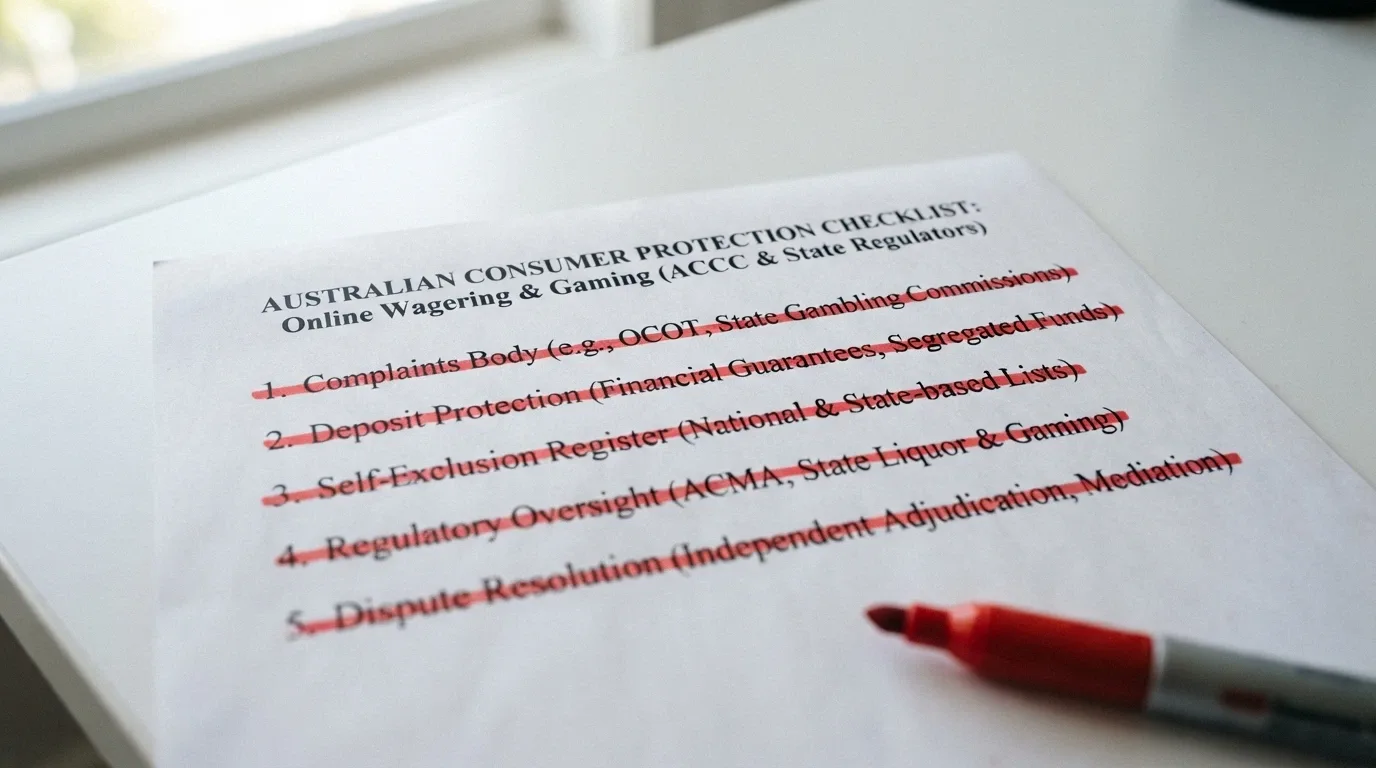 AUSTRALIAN CONSUMER PROTECTION CHECKLIST:
Online Wagering & Gaming (ACCC & State Regulators)
1. Complaints Body (e.g., OCOT, State Gambling Commissions)
2. Deposit Protection (Financial Guarantees, Segregated Funds)
3. Self-Exclusion Register (National & State-based Lists)
4. Regulatory Oversight (ACMA, State Liquor & Gaming)
5. Dispute Resolution (Independent Adjudication, Mediation)